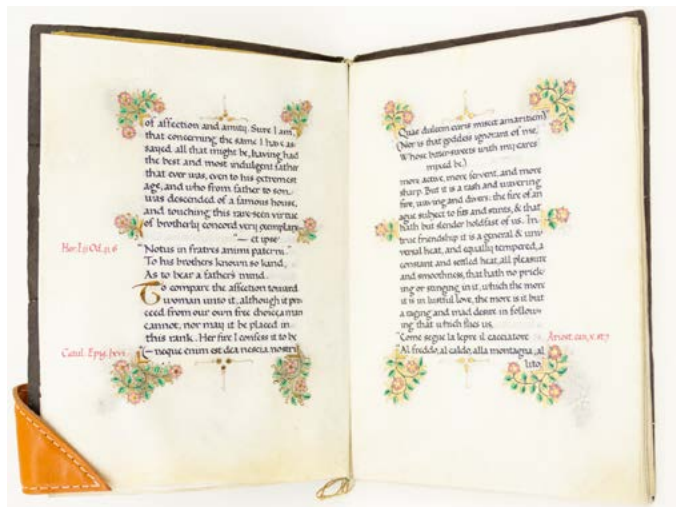 of affection and amity. Sure I am,
that concerning the same I have as-
sayed all that might be, having had
the best and most indulgent father
that ever was, even to his extremest
age, and who from father to son
was descended of a famous house,
and touching this rare-seen virtue
of brotherly concord very exemplare
"— et ipse
Hor. I. ij Od. ij. 6
"Notus in fratres animi paterni."
To his brothers known so kind,
As to bear a father's mind.
To compare the affection toward
woman unto it, although it pro-
ceed from our own free choice, a man
cannot, nor may it be placed in
this rank. Her fire I confess it to be
Catul. Epig. lxvi.
"(— neque enim est dea nescia nostri
Quae dulcem curis miscet amaritiem)
(Nor is that goddess ignorant of me,
Whose bitter-sweets with my cares
mixed be.)
more active, more fervent, and more
sharp. But it is a rash and wavering
fire, waving and divers: the fire of an
ague subject to fits and stints, & that
hath but slender holdfast of us. In
true friendship it is a general & uni-
versal heat, and equally tempered, a
constant and settled heat, all pleasure
and smoothness, that hath no prick-
ing or stinging in it, which the more
it is in lustful love, the more is it but
a raging and mad desire in follow-
ing that which flies us,
"Come segue la lepre il cacciatore
Ariost. can. x. st. 7
Al freddo, al caldo, alla montagna, al
lito,